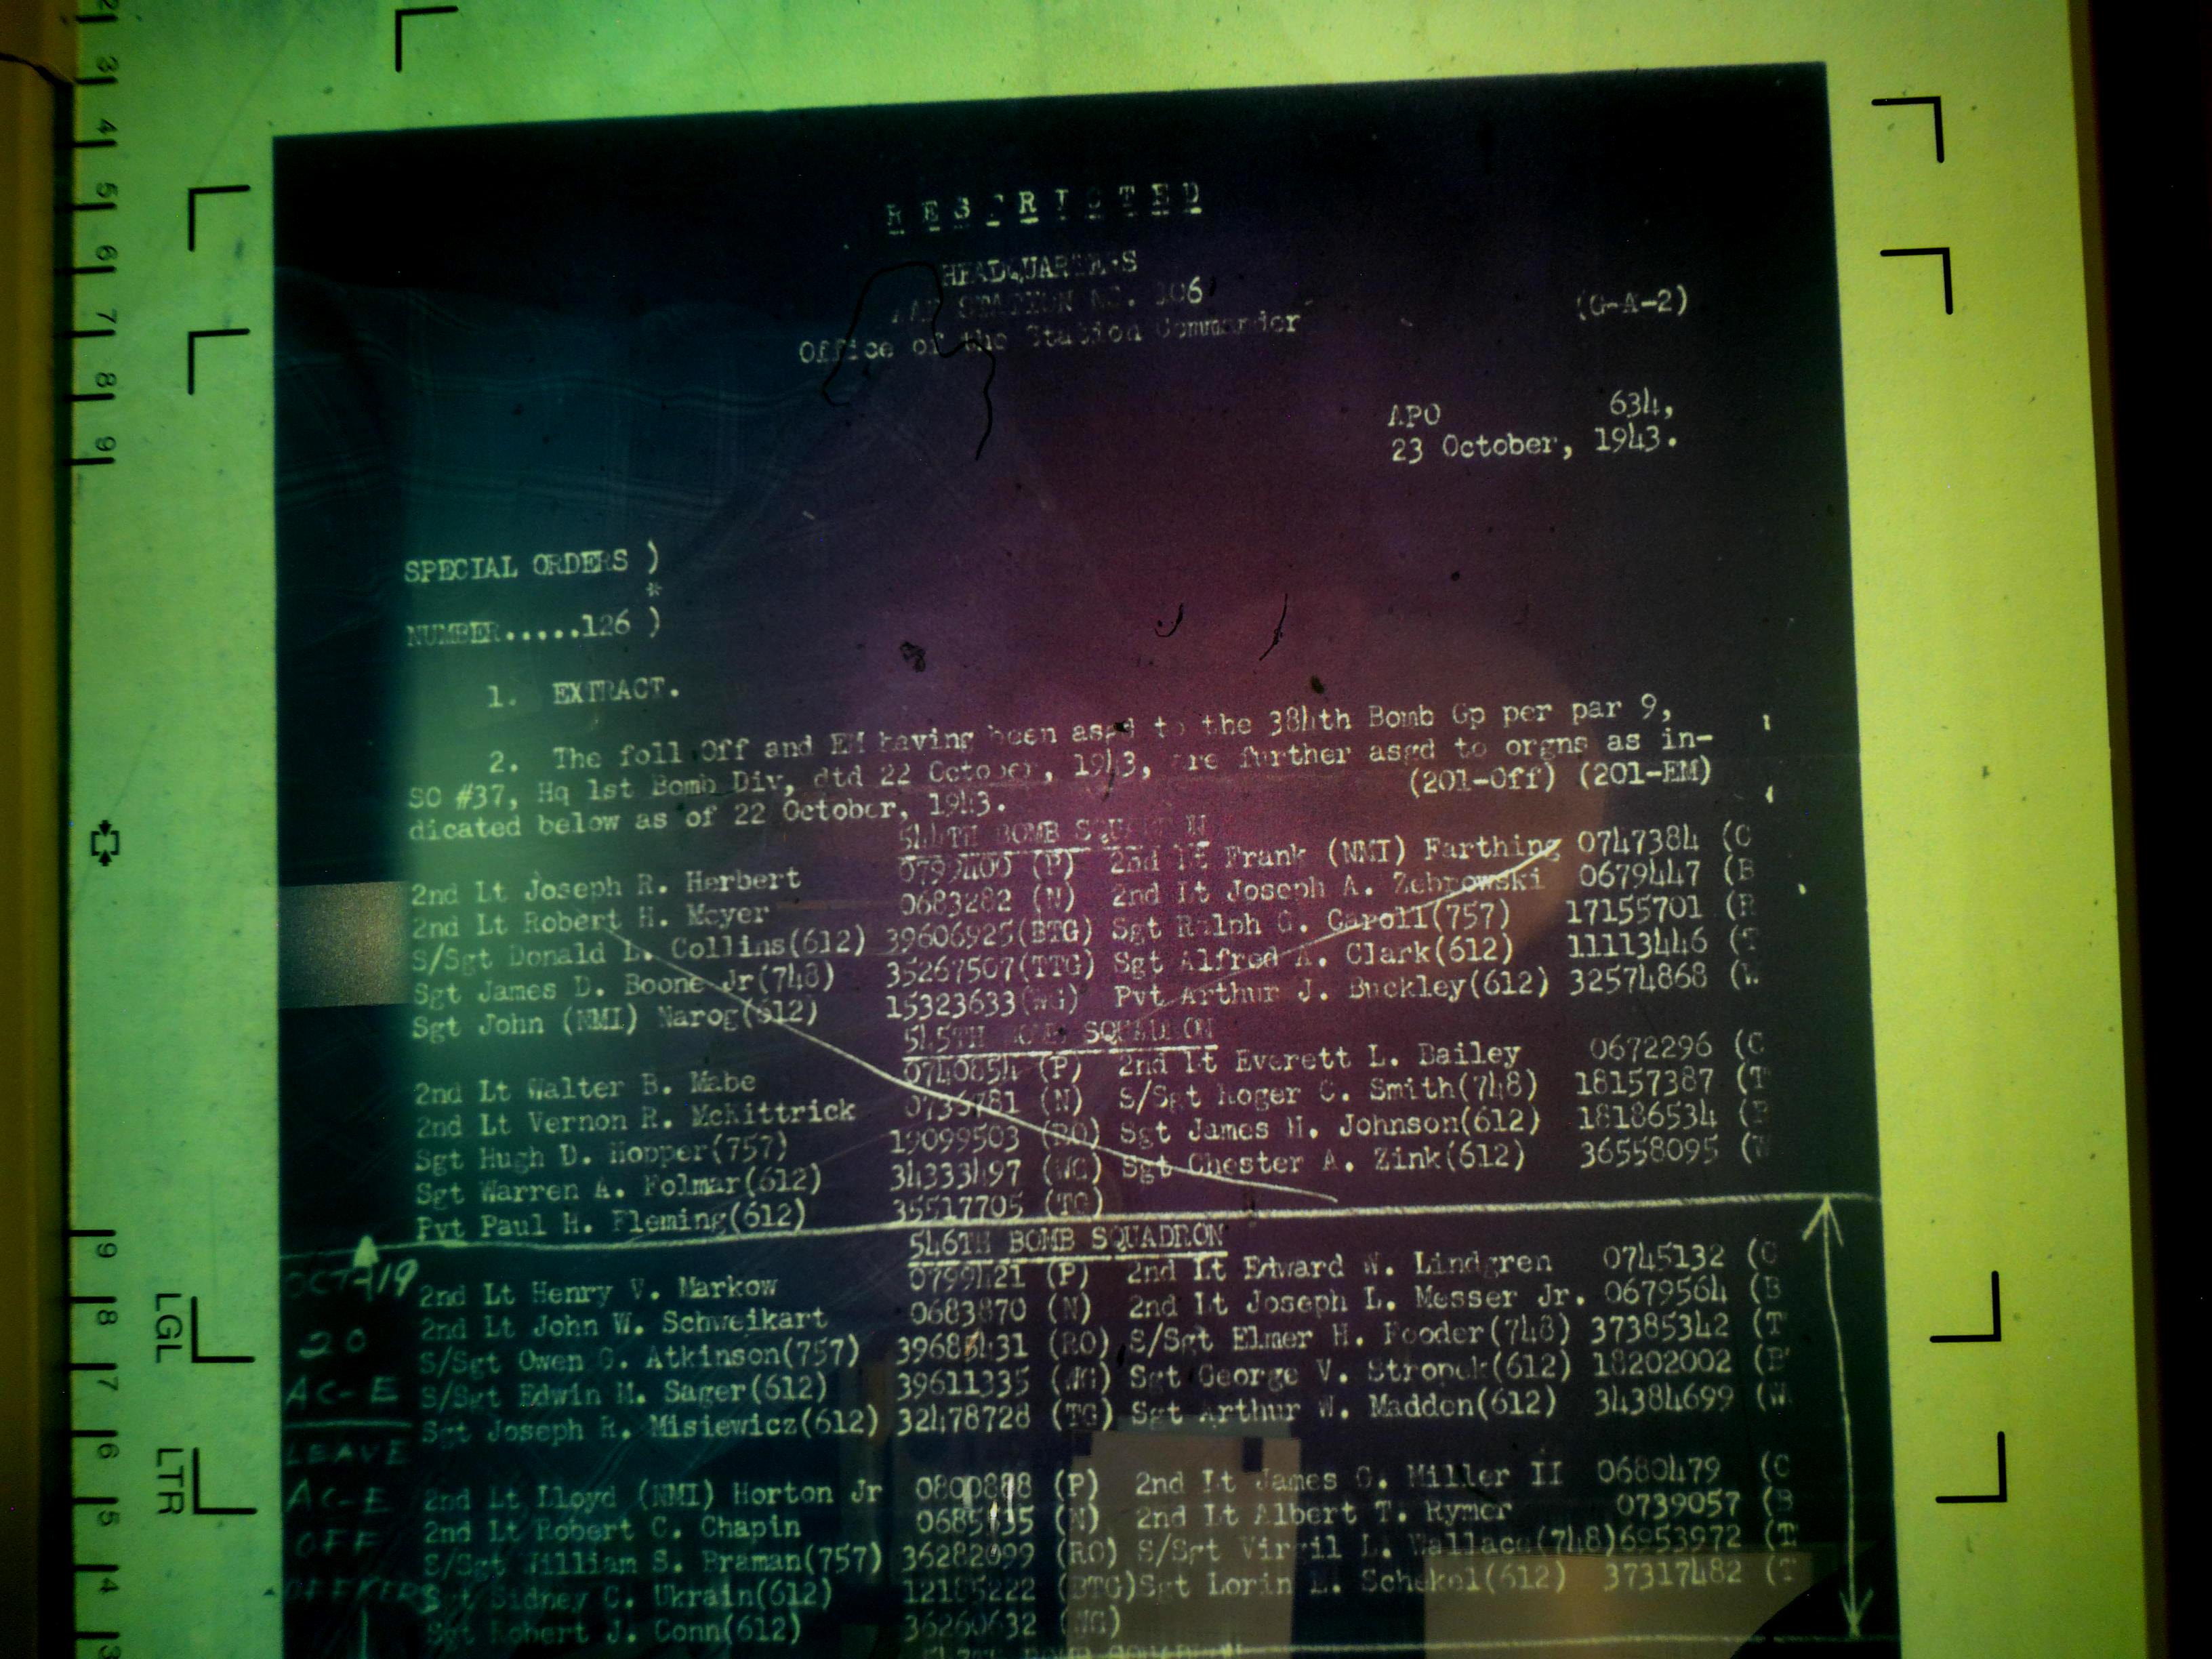 RESTRICTED
HEADQUARTERS
AAF STATION NO. 106
(G-A-2)
Office of the Station Commander
APO 634,
23 October, 1943.
SPECIAL ORDERS )
*
NUMBER.....126 )
1. EXTRACT.
2. The foll Off and EM having been asgd to the 384th Bomb Gp per par 9,
SO #37, Hq 1st Bomb Div, dtd 22 October, 1943, are further asgd to orgns as in-
dicated below as of 22 October, 1943. (201-Off) (201-EM)
544TH BOMB SQUADRON
2nd Lt Joseph R. Herbert 0799400 (P) 2nd Lt Frank (NMI) Farthing 0747384 (C
2nd Lt Robert H. Meyer 0683282 (N) 2nd Lt Joseph A. Zebrowski 0679447 (B
S/Sgt Donald L. Collins(612) 39606925(BTG) Sgt Ralph G. Caroll(757) 17155701 (R
Sgt James D. Boone Jr(748) 35267507(TTG) Sgt Alfred A. Clark(612) 11113446 (T
Sgt John (NMI) Narog(612) 15323633(WG) Pvt Arthur J. Buckley(612) 32574868 (W
545TH BOMB SQUADRON
2nd Lt Walter B. Mabe 0740854 (P) 2nd Lt Everett L. Bailey 0672296 (C
2nd Lt Vernon R. McKittrick (N) S/Sgt Roger C. Smith(748) 18157387 (T
Sgt Hugh D. Hopper(757) 19099503 (RO) Sgt James H. Johnson(612) 18186534 (B
Sgt Warren A. Folmar(612) 34333497 (WG) Sgt Chester A. Zink(612) 36558095 (W
Pvt Paul H. Fleming(612) 35517705 (TG)
546TH BOMB SQUADRON
2nd Lt Henry V. Markow 0799421 (P) 2nd Lt Edward W. Lindgren 0745132 (C
2nd Lt John W. Schweikart 0683870 (N) 2nd Lt Joseph L. Messer Jr. 0679564 (B
S/Sgt Owen O. Atkinson(757) (RO) S/Sgt Elmer H. Fooder(748) 37385342 (T
S/Sgt Edwin M. Sager(612) 39611335 (WG) Sgt George V. Stropek(612) 18202002 (B
Sgt Joseph R. Misiewicz(612) 32478728 (TG) Sgt Arthur W. Madden(612) 34384699 (W
2nd Lt Lloyd (NMI) Horton Jr 0800888 (P) 2nd Lt James G. Miller II 0680479 (C
2nd Lt Robert C. Chapin (N) 2nd Lt Albert T. Rymer 0739057 (B
S/Sgt William S. Braman(757) 36282099 (RO) S/Sgt Virgil L. Wallace(748)6953972 (T
Sgt Sidney C. Ukrain(612) 12185222 (BTG)Sgt Lorin L. Schekel(612) 37317482 (T
Sgt Robert J. Conn(612) 36260632 (WG)
OCT-19
20
AC-E
LEAVE
AC-E
OFF
2
3
4
5
6
7
8
9
9
8
7
6
5
4
3
LGL
LTR